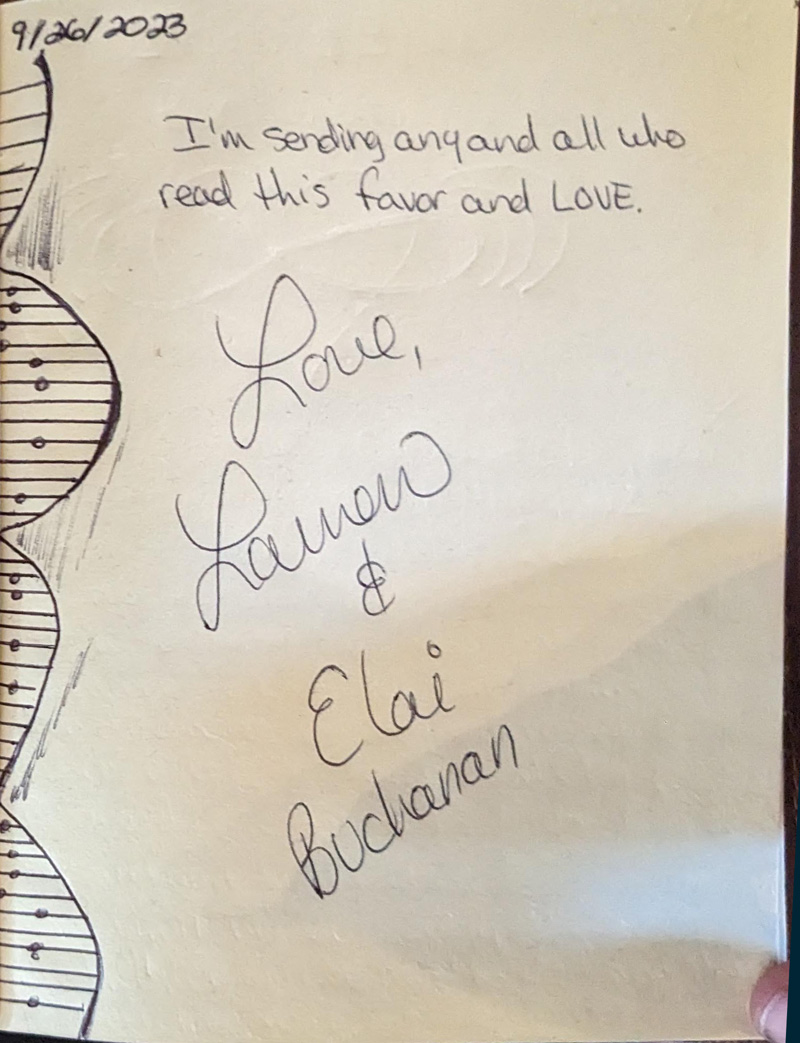 9/26/2023
I'm sending any and all who
read this favor and LOVE.
Love,
&
Elai
Buchanan